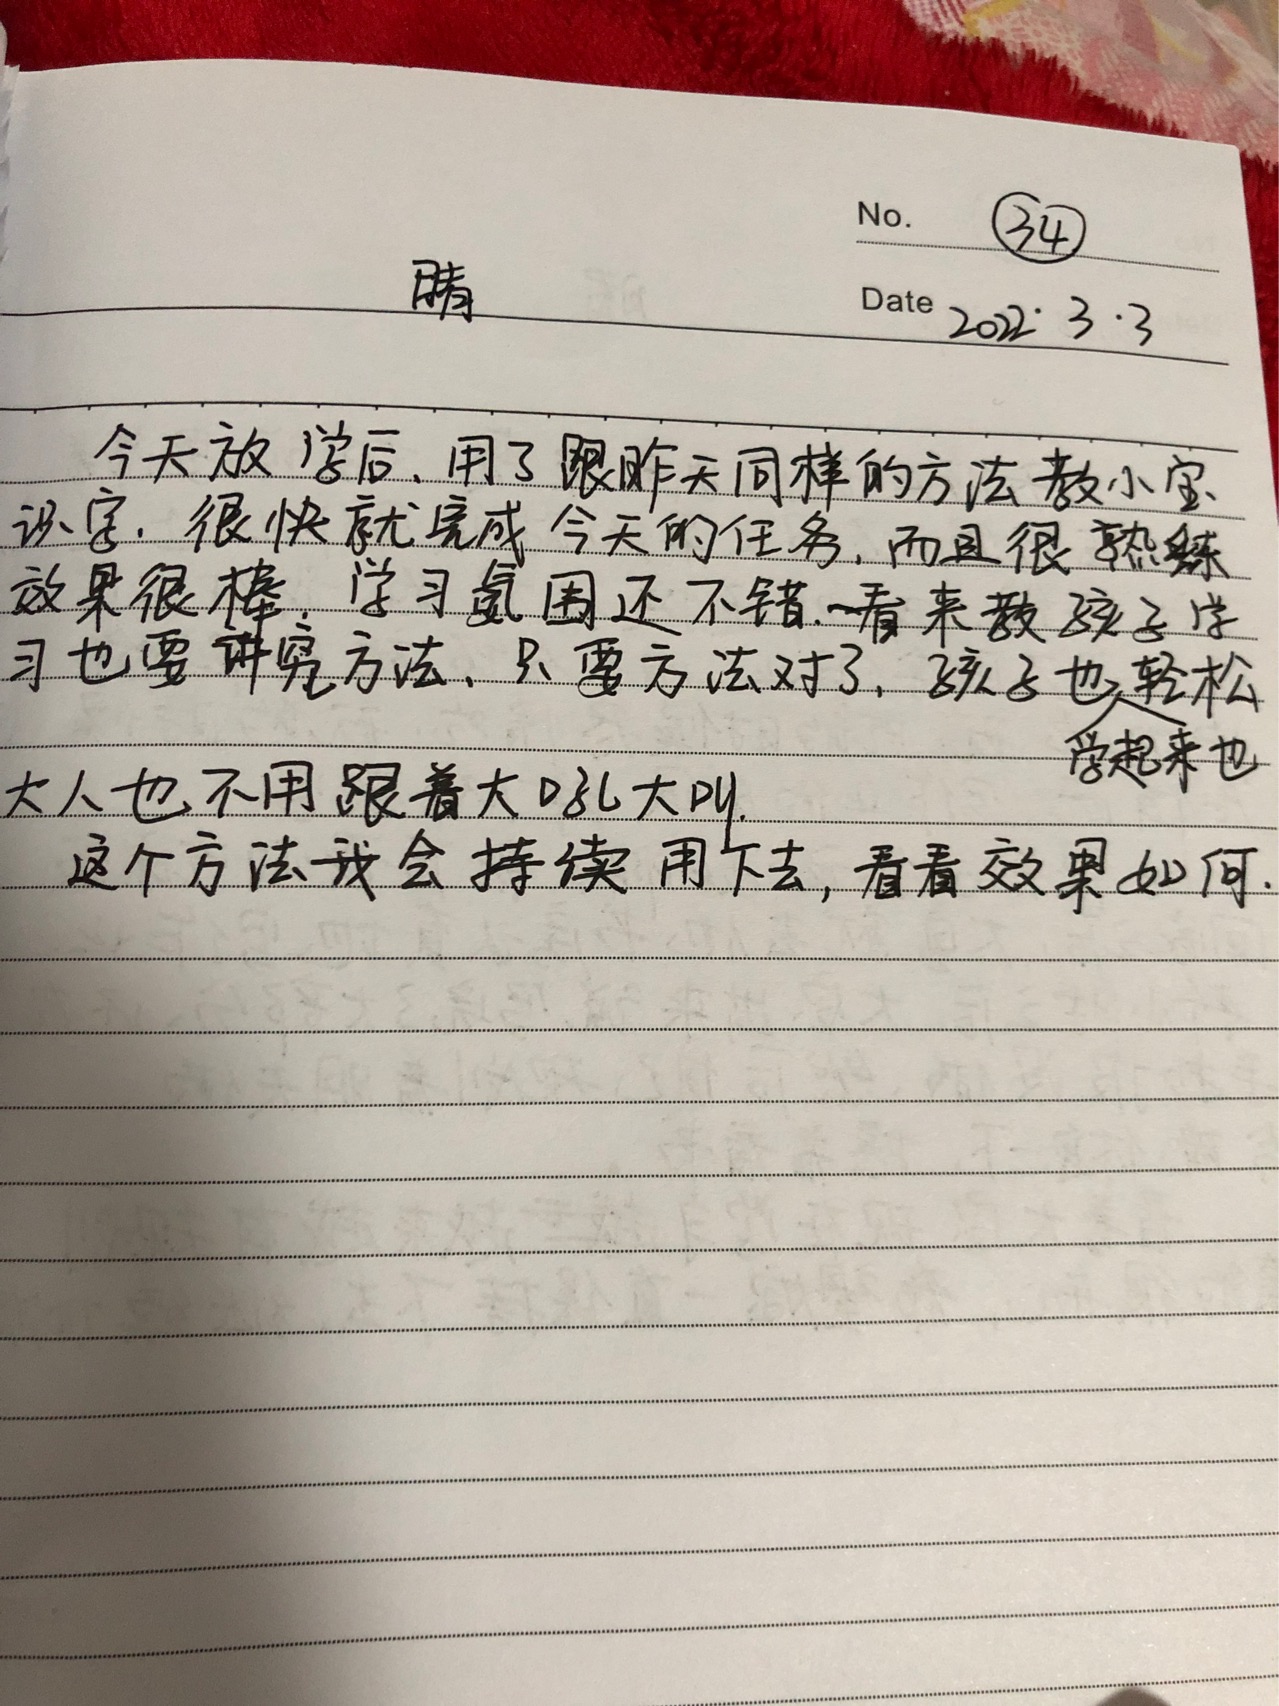 No. 34
晴
Date 2022.3.3
今天放学后、用了跟昨天同样的方法教小宝
识字. 很快就完成今天的任务, 而且很熟练
效果很棒, 学习氛围还不错. 看来教孩子学
习也要讲究方法、只要方法对了, 孩子也轻松
学起来也
大人也不用跟着大吼大叫.
这个方法我会持续用下去, 看看效果如何.